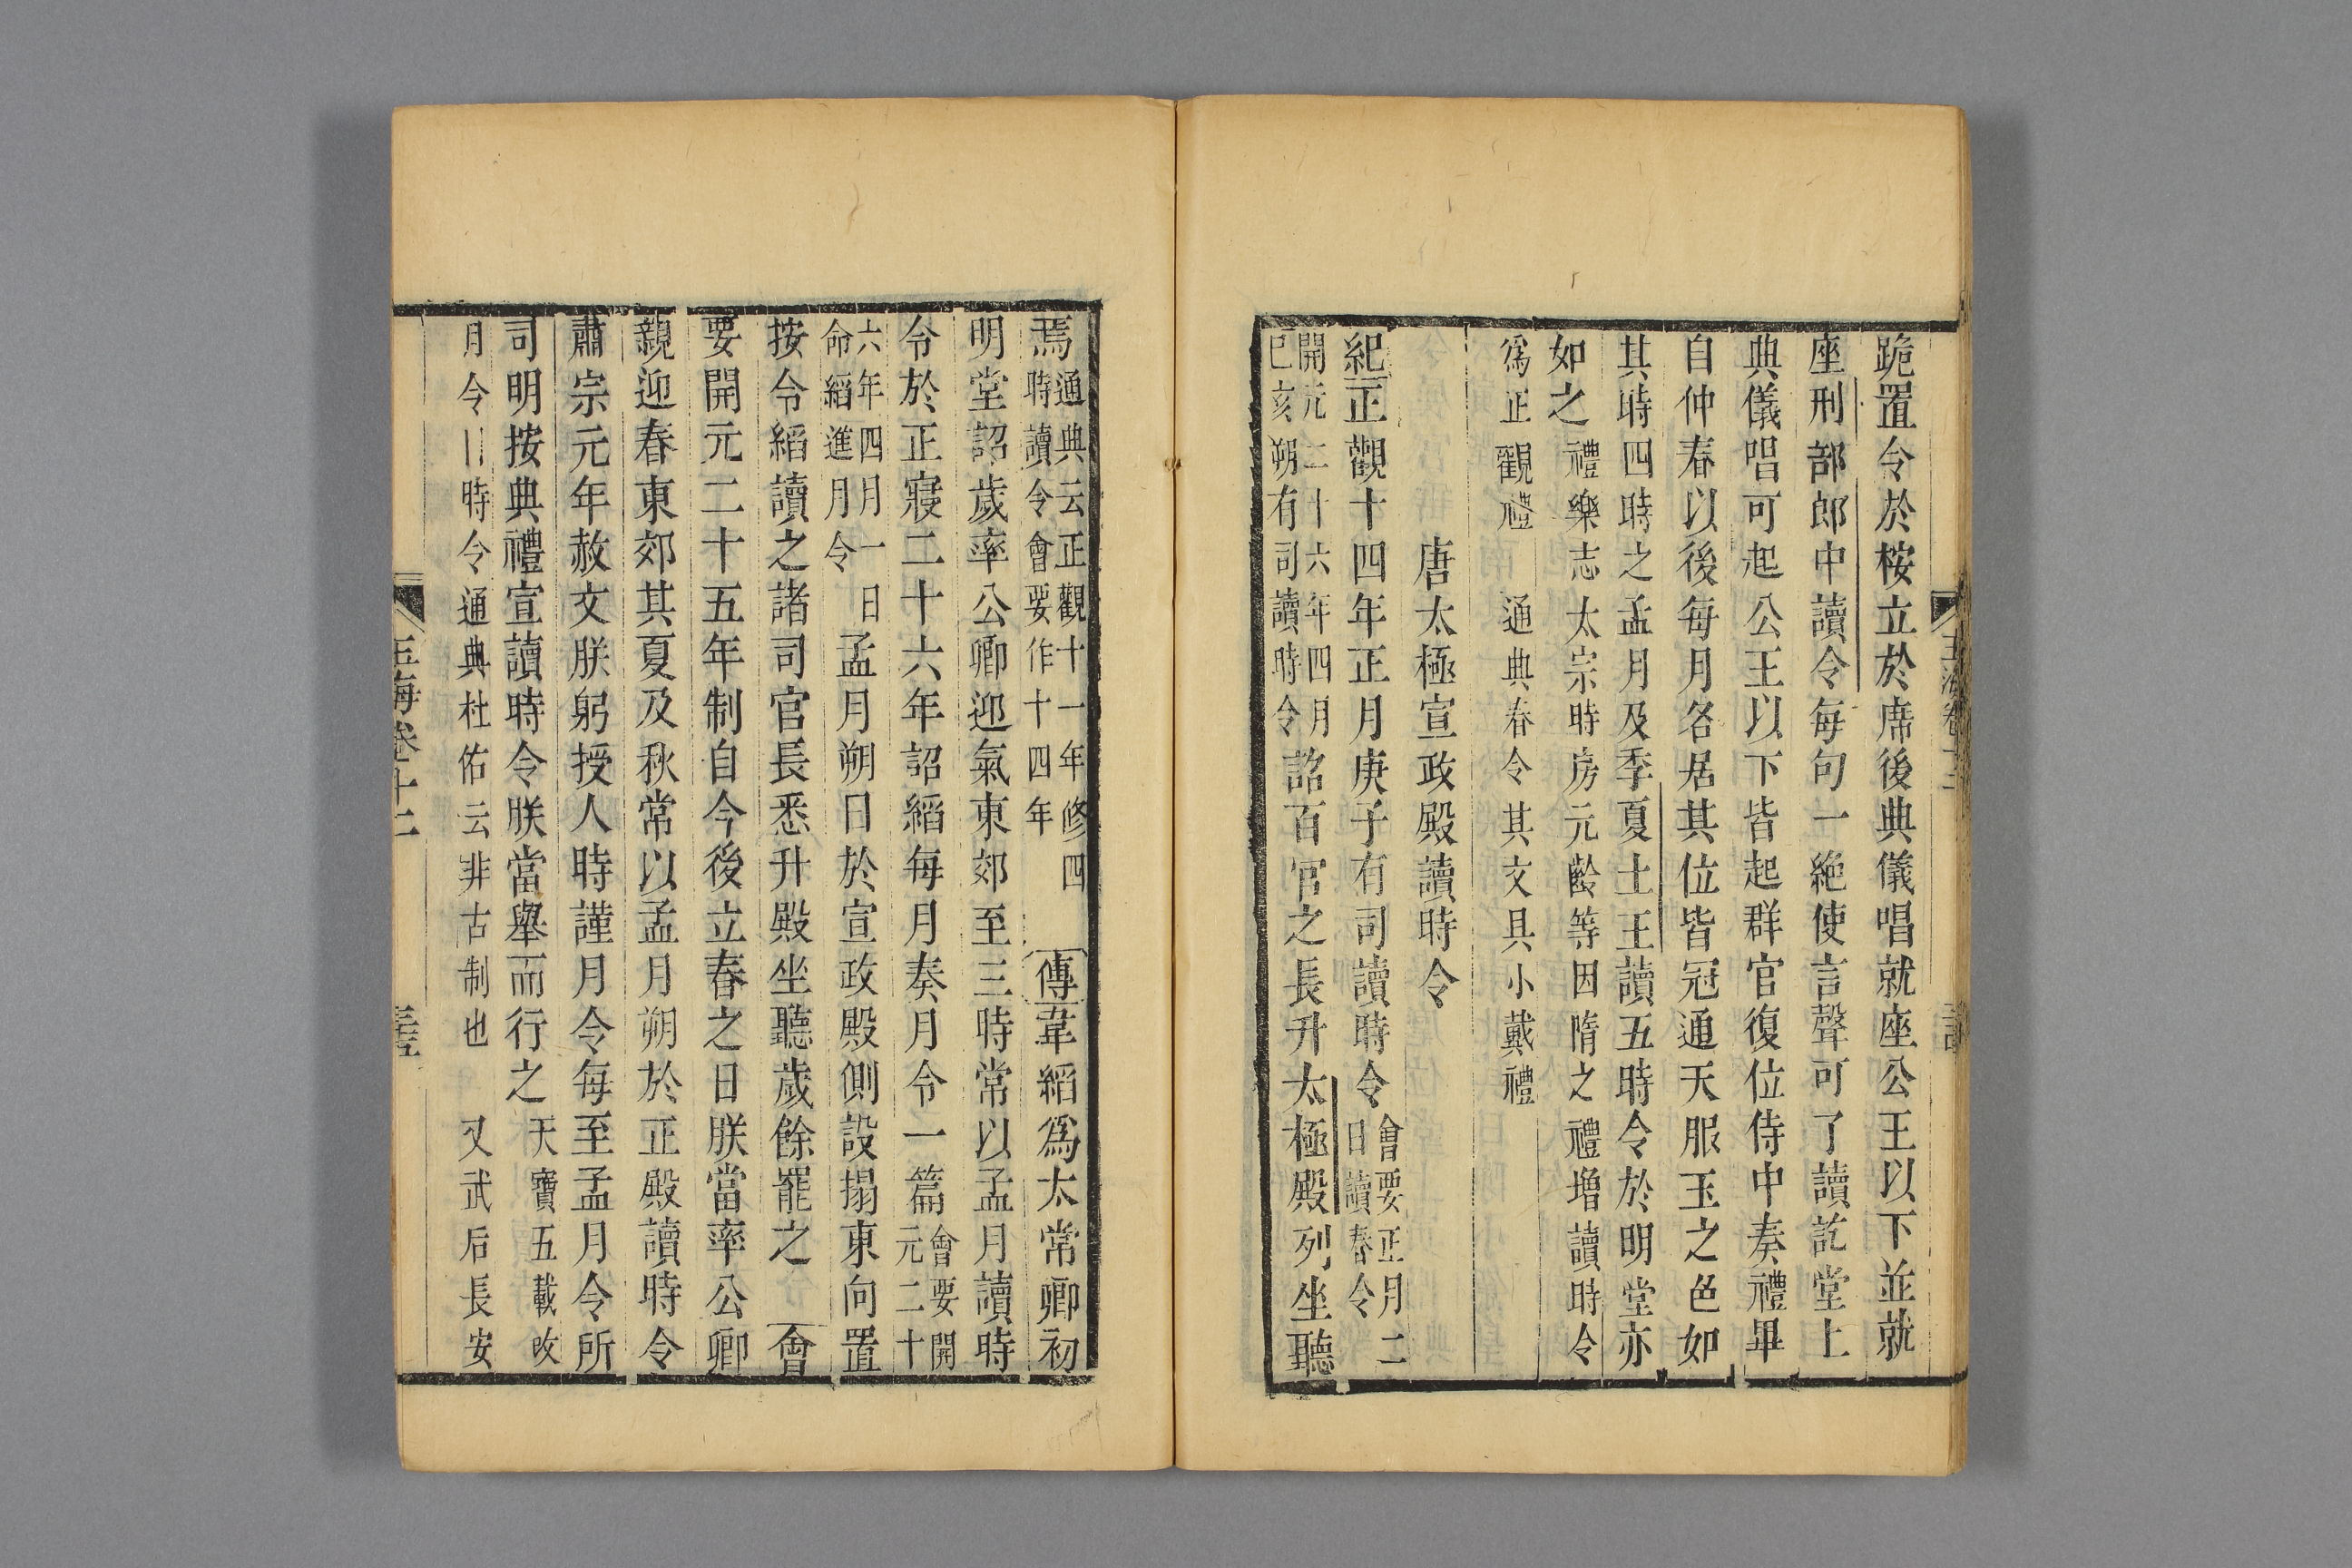 跪置令於桉立於席後典儀唱就座公王以下並就
座刑部郎中讀令每句一絶使言聲可了讀訖堂上
典儀唱可起公王以下皆起群官復位侍中奏禮畢
自仲春以後每月各居其位皆冠通天服玉之色如
其時四時之孟月及季夏土王讀五時令於明堂亦
如之禮樂志太宗時房元齡等因隋之禮増讀時令
爲正觀禮　通典春令其文具小戴禮
唐太極宣政殿讀時令
紀正觀十四年正月庚子有司讀時令會要正月二
日讀春令
開元二十六年四月
已亥朔有司讀時令詔百官之長升太極殿列坐聽
焉通典云正觀十一年修四
時讀令會要作十四年　傳韋縚爲太常卿初
明堂詔歲率公卿迎氣東郊至三時常以孟月讀時
令於正寢二十六年詔縚每月奏月令一篇會要開
元二十
六年四月一日
命縚進月令孟月朔日於宣政殿側設榻東向置
按令縚讀之諸司官長悉升殿坐聽歲餘罷之　會
要開元二十五年制自今後立春之日朕當率公卿
親迎春東郊其夏及秋常以孟月朔於正殿讀時令
肅宗元年赦文朕躬授人時謹月令每至孟月令所
司明按典禮宣讀時令朕當舉而行之天寶五載改
月令曰時令通典杜佑云非古制也　又武后長安
玉海卷十二